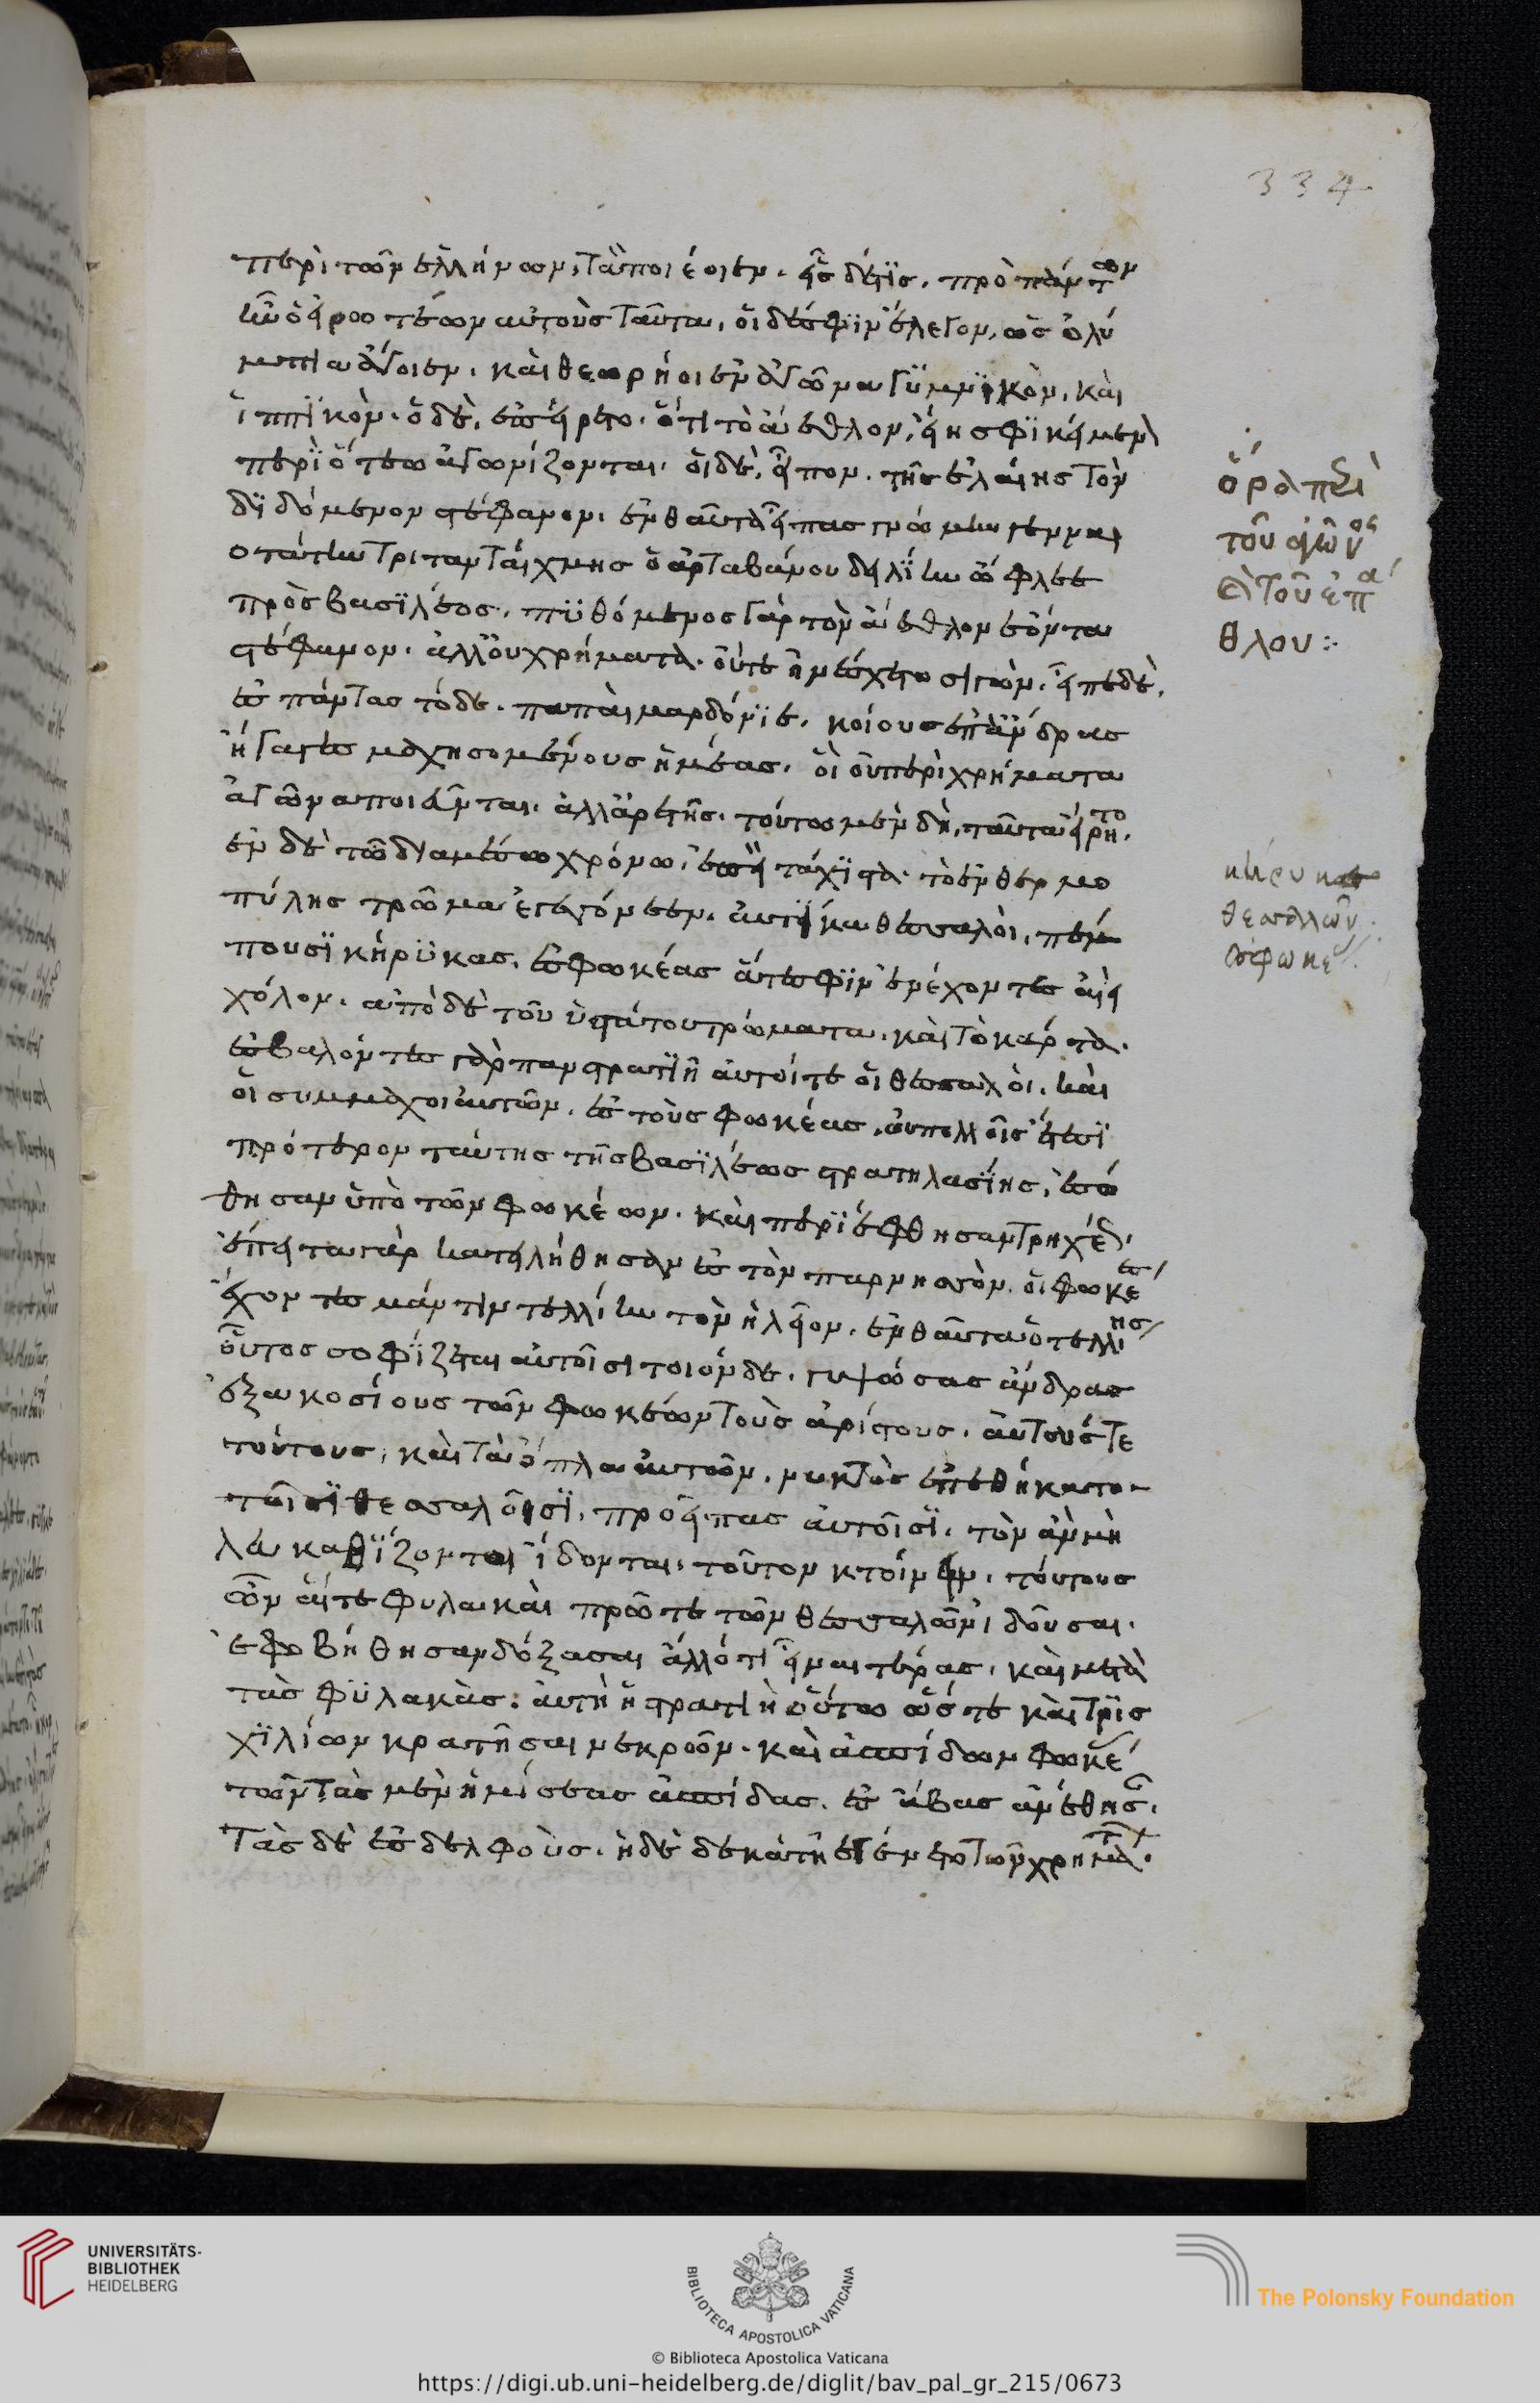 334
περὶ τῶν ἑλλήνων, τὰ ποιέοιεν. εἷς δέ τις. πρὸ πάντων
ἦν ὁ εἰρωτέων αὐτοὺς ταῦτα. οἱ δέ σφϊν ἔλεγον, ὡς ὀλύ
μπια ἄγοιεν. καὶ θεωρέοιεν ἀγῶνα γϋμνϊκὸν, καὶ
ἱππϊκόν. ὁ δὲ, ἐπείρετο. ὅτι τὸ ἄεθλον, εἴη σφϊ κείμενον
περὶ ὅτεω ἀγωνίζονται. οἱ δὲ, εἶπον. τῆς ἐλαίης τὸν
δϊδόμενον στέφανον. ἐνθαῦτα εἴπας γνώμην γενναι
οτάτην τριταντάχμης ὁ ἀρταβάνου δηλίην ὤφλεε
πρὸς βασϊλέος. πϋθόμενος γὰρ τὸν ἄεθλον ἐόντα
στέφανον. ἀλλ' οὐ χρήματα. οὔτε ἠνέσχετο σιγῶν. εἶπε δὲ.
ἐς πάντας τόδε. παπαὶ μαρδόνϊε. κοίους ἐπ' ἄνδρας
ἤγαγες μαχησομένους ἡμέας. οἳ οὐ περὶ χρήματα
ἀγῶνα ποιεῦνται. ἀλλ' ἀρετῆς. τούτω μὲν δὴ, ταῦτα εἴρητο.
ἐν δὲ τῶ διαμέσω χρόνω. ἐπεί τάχϊστα. τὸ ἐν θερμο
πύλης τρῶμα ἐγεγόνεεν. αὐτίκα θεσσαλοὶ, πέμ
πουσϊ κήρϋκας. ἐς φωκέας ἅτε σφϊν ἐνέχοντες αἰεὶ
χόλον. ἀπὸ δὲ τοῦ ὑστάτου τρώματα. καὶ τὸ κάρτα.
ἐσβαλόντες γὰρ πανστρατϊῆ αὐτοί τε οἱ θεσσαλοὶ. καὶ
οἱ σύμμαχοι αὐτῶν. ἐς τοὺς φωκέας. οὐ πολλοῖσ' ἔτεσϊ
πρότερον ταύτης τῆς βασϊλέως στρατηλασίης, ἐσσώ
θησαν ὑπὸ τῶν φωκέων. καὶ περϊέφθησαν τρηχέ.
ἐπείτα γὰρ κατειλήθησαν ἐς τὸν παρνησὸν. οἱ φωκέες
ἔχοντες μάντιν τελλίην τὸν ἠλεῖον. ἐνθαῦτα ὁ τελλίης
οὗτος σοφΐζεται αὐτοῖσι τοιόνδε. γυψώσας ἄνδρας
ἑξακοσίους τῶν φωκέων τοὺς ἀρίστους. αὐτούς τε
τούτους, καὶ τὰ ὅπλα αὐτῶν. νυκτὸς ἐπεθήκατο
τοῖσϊ θεσσαλοῖσϊ. προείπας αὐτοῖσϊ. τὸν ἂν μὴ
λευκαθίζοντα ἴδονται. τοῦτον κτείνειν. τούτους
ὦν αἵ τε φυλακαὶ πρῶται τῶν θεσσαλῶν ἰδοῦσαι.
ἐφοβήθησαν δόξασαι ἄλλό τι εἶναι τέρας. καὶ μετὰ
τὰς φϋλακὰς. αὐτὴ ἡ στρατϊὴ οὕτω ὥστε καὶ τρϊσ
χϊλίων κρατῆσαι νεκρῶν. καὶ ἀσπίδων φωκέ
τῶν τὰς μὲν ἡμισέας ἀσπίδας. ἐς ἄβας ἀνέθησ.
τὰς δὲ ἐς δελφοὺς. ἡ δὲ δεκάτη ἐγένετο τῶν χρημάτ.
ὅρα περὶ
τοῦ ἀγῶνος
καὶ τοῦ ἐπά
θλου:
κήρυκες
θεσσαλῶν
ἐς φωκέ
UNIVERSITÄTS-
BIBLIOTHEK
HEIDELBERG
BIBLIOTECA APOSTOLICA VATICANA
The Polonsky Foundation
© Biblioteca Apostolica Vaticana
https://digi.ub.uni-heidelberg.de/diglit/bav_pal_gr_215/0673